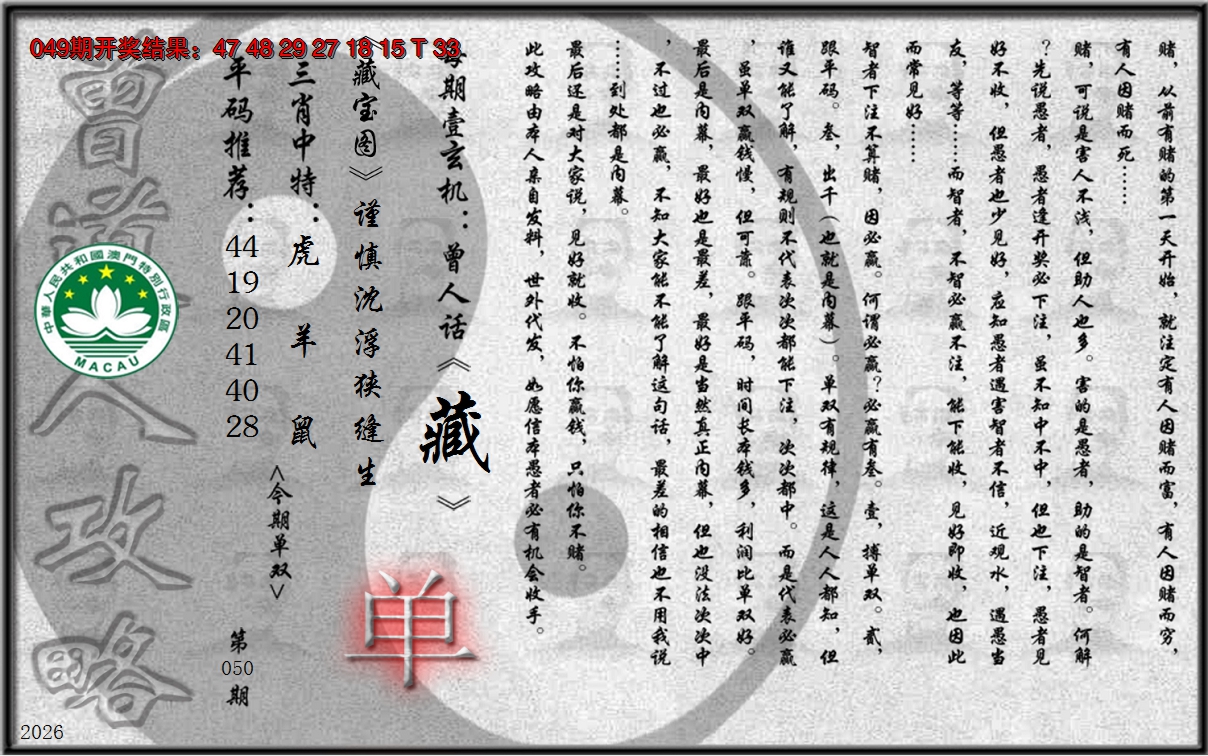 049期开奖结果：47 48 29 27 18 15 T 33
赌，从前有赌的第一天开始，就注定有人因赌而富，有人因赌而穷，
有人因赌而死……
赌，可说是害人不浅，但助人也多。害的是愚者，助的是智者。何解
？先说愚者，愚者逢开奖必下注，虽不知中不中，但也下注，愚者见
好不收，但愚者也少见好，应知愚者遇害智者不信，近观水，遇愚当
友，等等……而智者，不智必赢不注，能下能收，见好即收，也因此
而常见好……
智者下注不算赌，因必赢。何谓必赢？必赢有叁。壹，搏单双。贰，
跟平码。叁，出千（也就是内幕）。单双有规律，这是人人都知，但
谁又能了解，有规则不代表次次都能下注，次次都中。而是代表必赢
，虽单双赢钱慢，但可靠。跟平码，时间长本钱多，利润比单双好。
最后是内幕，最好也是最差，最好是当然真正内幕，但也没法次次中
，不过也必赢，不知大家能不能了解这句话，最差的相信也不用我说
……到处都是内幕。
最后还是对大家说，见好就收。不怕你赢钱，只怕你不赌。
此攻略由本人亲自发料，世外代发，如愿信本愚者必有机会收手。
每期壹玄机：曾人话《藏》
《藏宝图》谨慎沈浮狭缝生
三肖中特：虎 羊 鼠
平码推荐：
44
19
20
41
40
28
<今期单双>
单
第
050
期
曾道人攻略
中華人民共和國澳門特別行政區
MACAU
2026